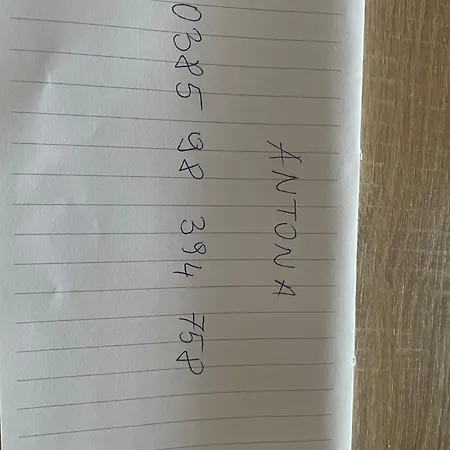 ANTONA
0385 98 394 758